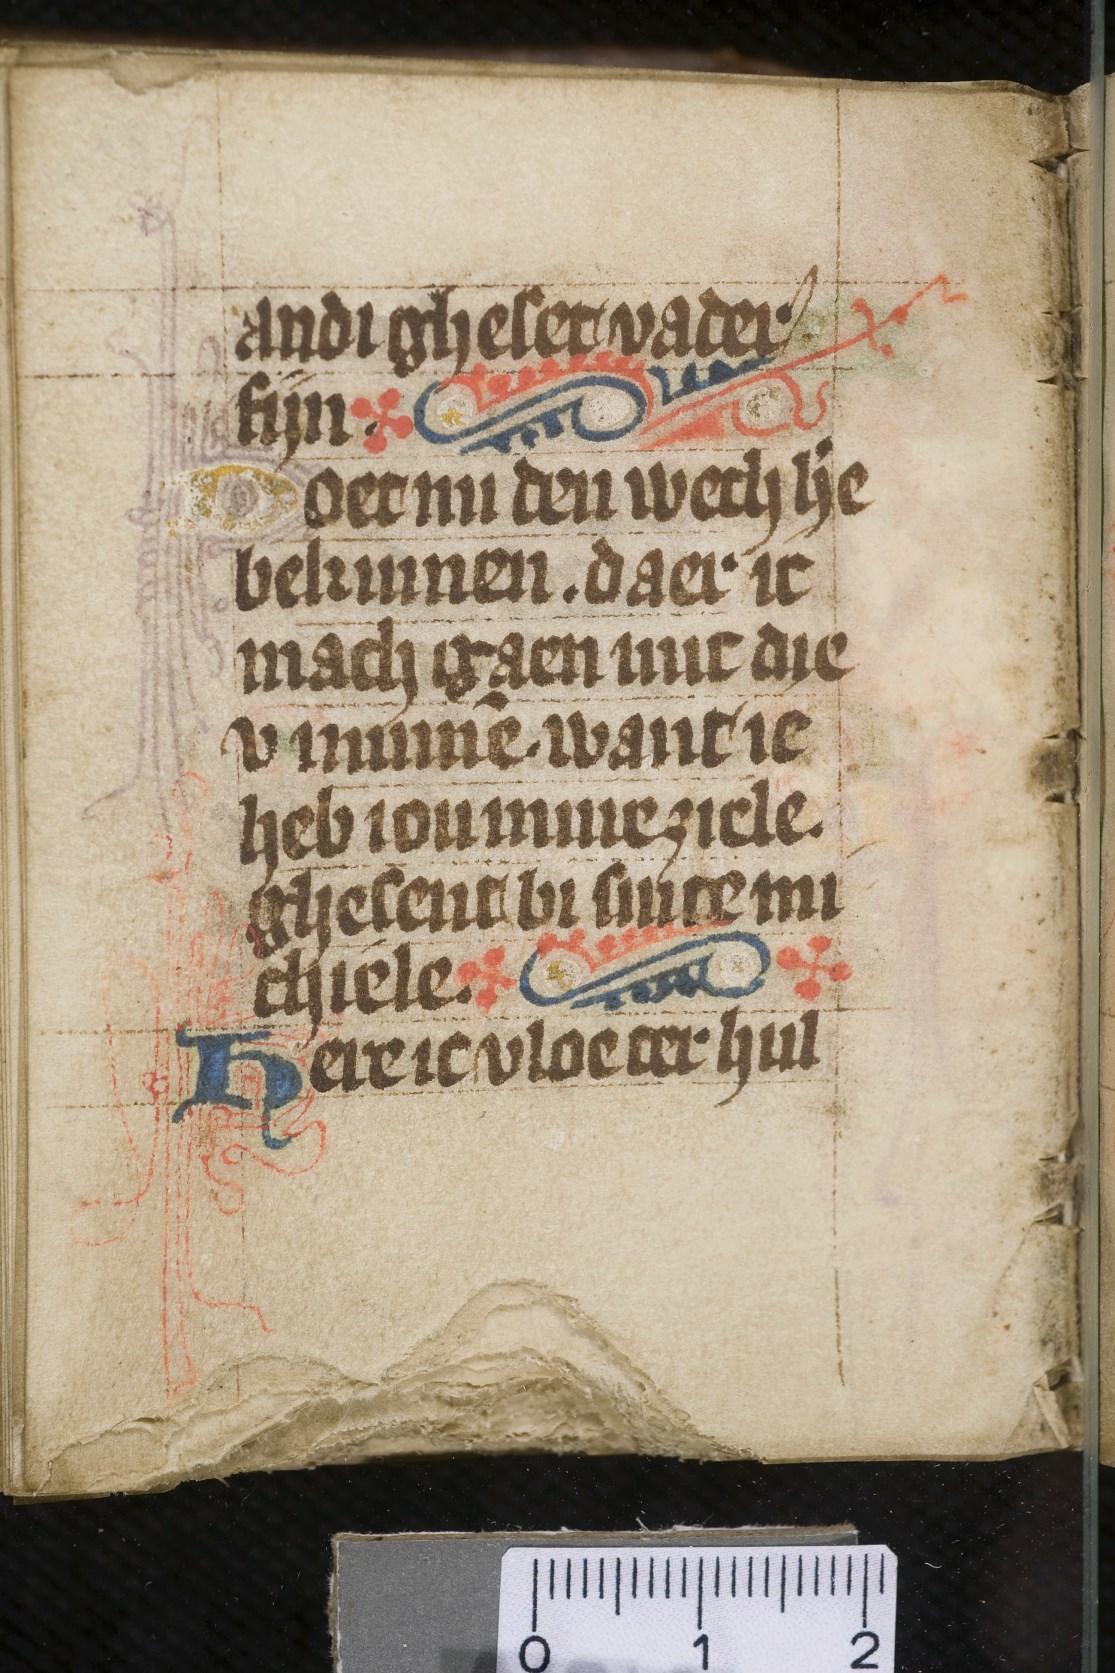 andi gheset vader
sijn.
Doet mi den wech h̄e
bekinnen. daer ic
mach gaen mit die
v minnē. want ic
heb iou mine ziele.
ghesent bi sinte mi
chiele.
Here ic vloe ter hul
0 1 2